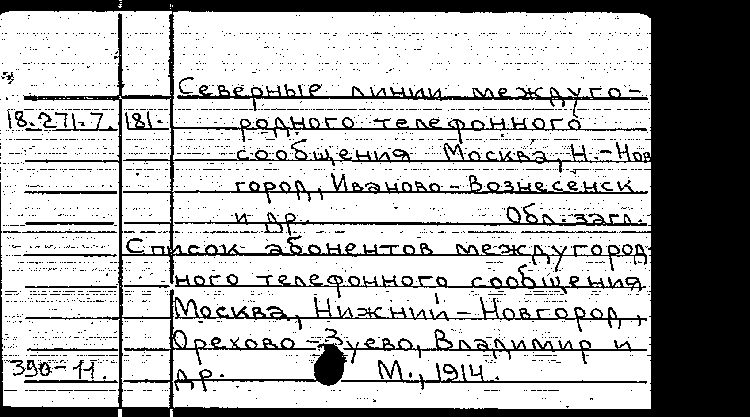 Северные линии междуго-
18.271.7. 181. родного телефонного
сообщения Москва, Н.-Нов
город, Иваново-Вознесенск
и др. Обл. загл.
Список абонентов междугород-
ного телефонного сообщения
Москва, Нижний-Новгород,
Орехово-Зуево, Владимир и
390-11. др. М., 1914.